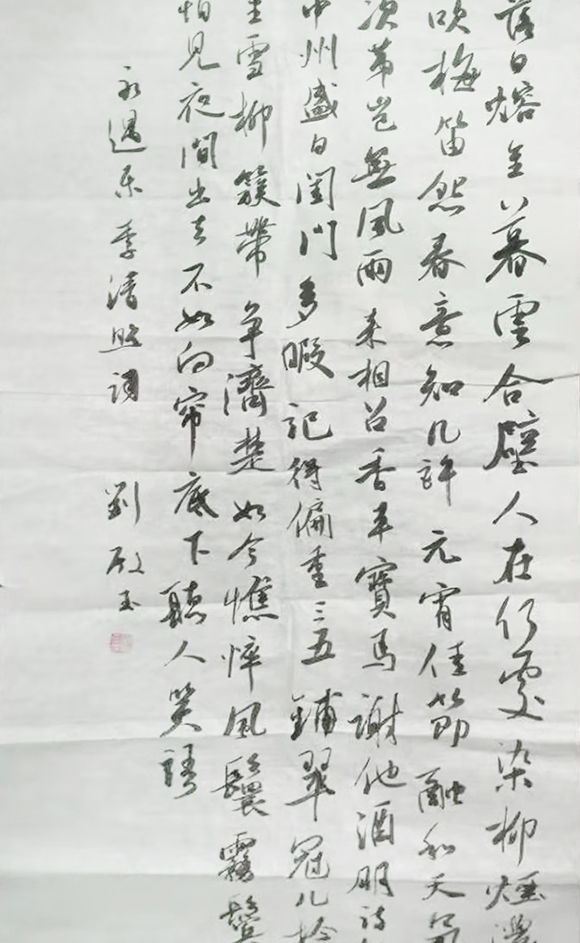 落日熔金暮雲合璧人在何處染柳煙濃
吹梅笛怨春意知几許元宵佳節融和天氣
次第岂無風雨来相召香车寶馬謝他酒朋詩
中州盛日閨门多暇記得偏重三五鋪翠冠儿捻
金雪柳簇帶争濟楚如今憔悴风鬟霧鬢
怕見夜间出去不如向帘底下聽人笑語
永遇乐李清照詞 劉啟玉